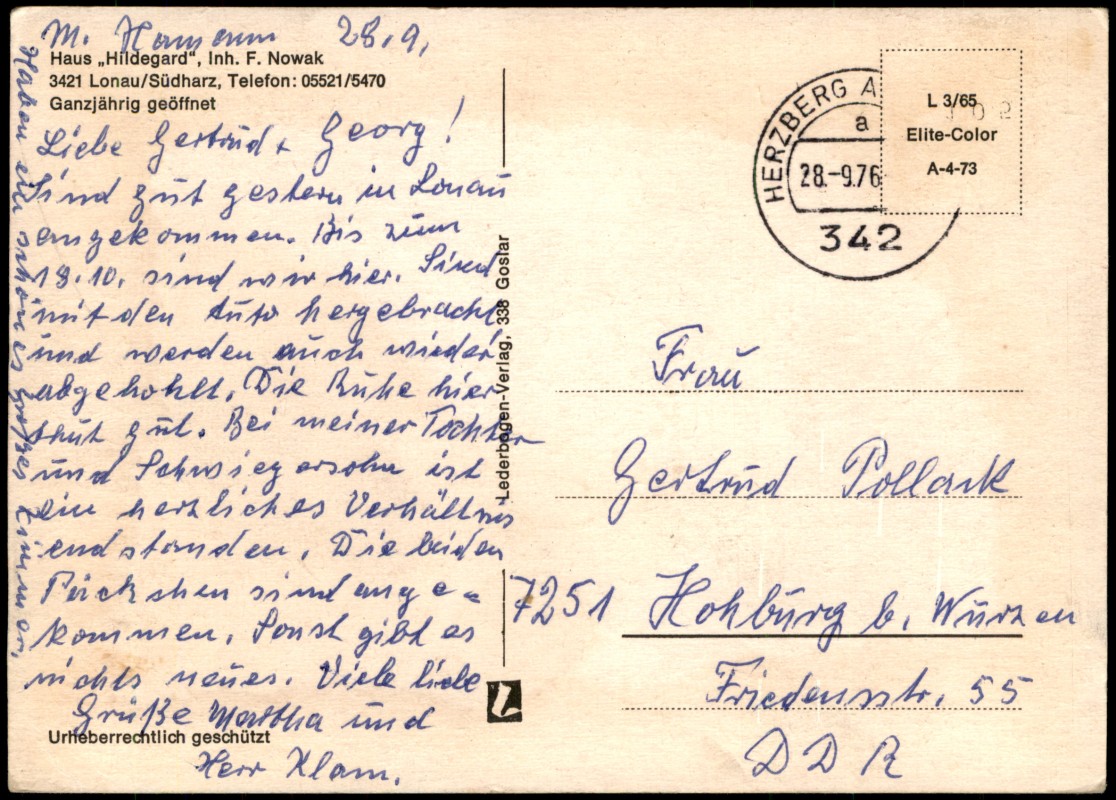 M. Hamann 28.9.
Haus „Hildegard", Inh. F. Nowak
3421 Lonau/Südharz, Telefon: 05521/5470
Ganzjährig geöffnet
Liebe Gertrud + Georg!
Sind gut gestern in Lonau
angekommen. Bis zum
18.10. sind wir hier. Sind
mit den Auto hergebracht
und werden auch wieder
abgehohlt. Die Ruhe hier
thut gut. Bei meiner Tochter
und Schwiegersohn ist
ein herzliches Verhältnis
endstanden. Die beiden
Päckchen sind ange-
kommen. Sonst gibt es
nichts neues. Viele liebe
Grüße Martha und
Herr Klam.
Haben ein schönes großes Zimmer.
Urheberrechtlich geschützt
Lederbogen-Verlag, 338 Goslar
HERZBERG A
a
28.-9.76
342
L 3/65
Elite-Color
A-4-73
Frau
Gertrud Pollack
7251 Hohburg b. Wurzen
Friedensstr. 55
DDR